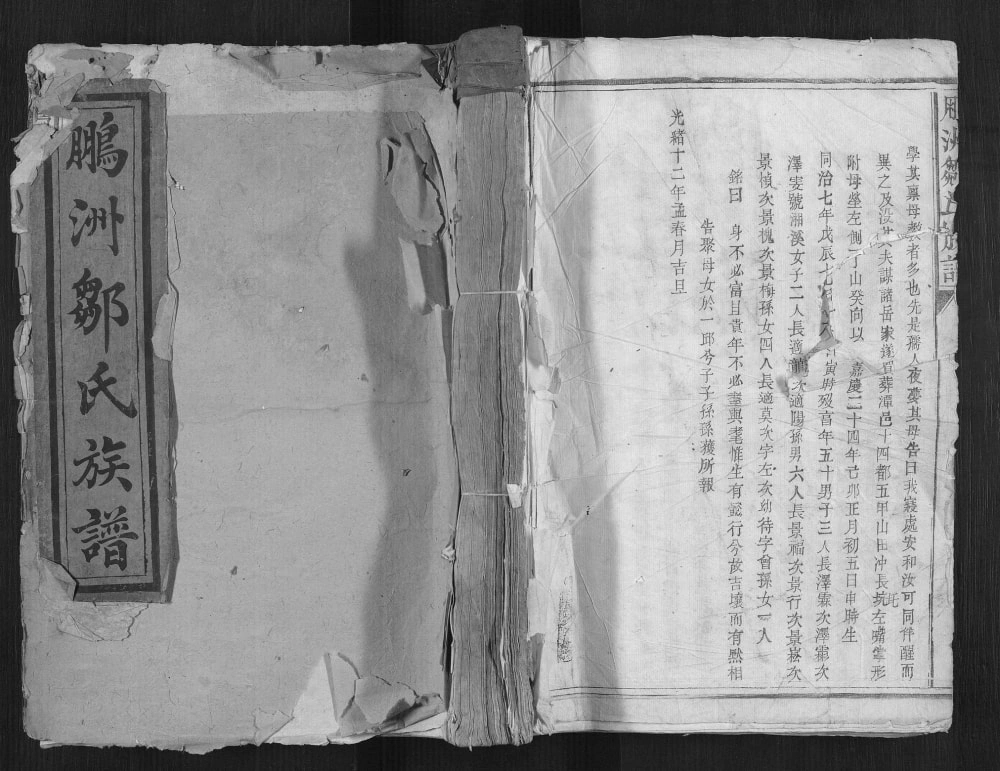 鵬洲鄒氏族譜
洲鄒氏族譜
學其稟母教者多也先是孺人夜夢其母告曰我窀處安和汝可同伴醒而
異之及沒其夫謀諸岳家遂買葬潭邑十四都五甲山田冲長坑左嘴掌形
附母塋左側丁山癸向以 嘉慶二十四年己卯正月初五日申時生
同治七年戊辰七月十八日寅時歿享年五十男子三人長澤霖次澤霱次
澤雯號湘溪女子二人長適顏次適陽孫男六人長景福次景行次景崧次
景楨次景槐次景梅孫女四人長適莫次字左次幼待字曾孫女一人
銘曰 身不必富且貴年不必耋與耄惟生有懿行兮故吉壤而有默相
告聚母女於一邱兮子子孫孫獲所報
光緒十二年孟春月吉旦